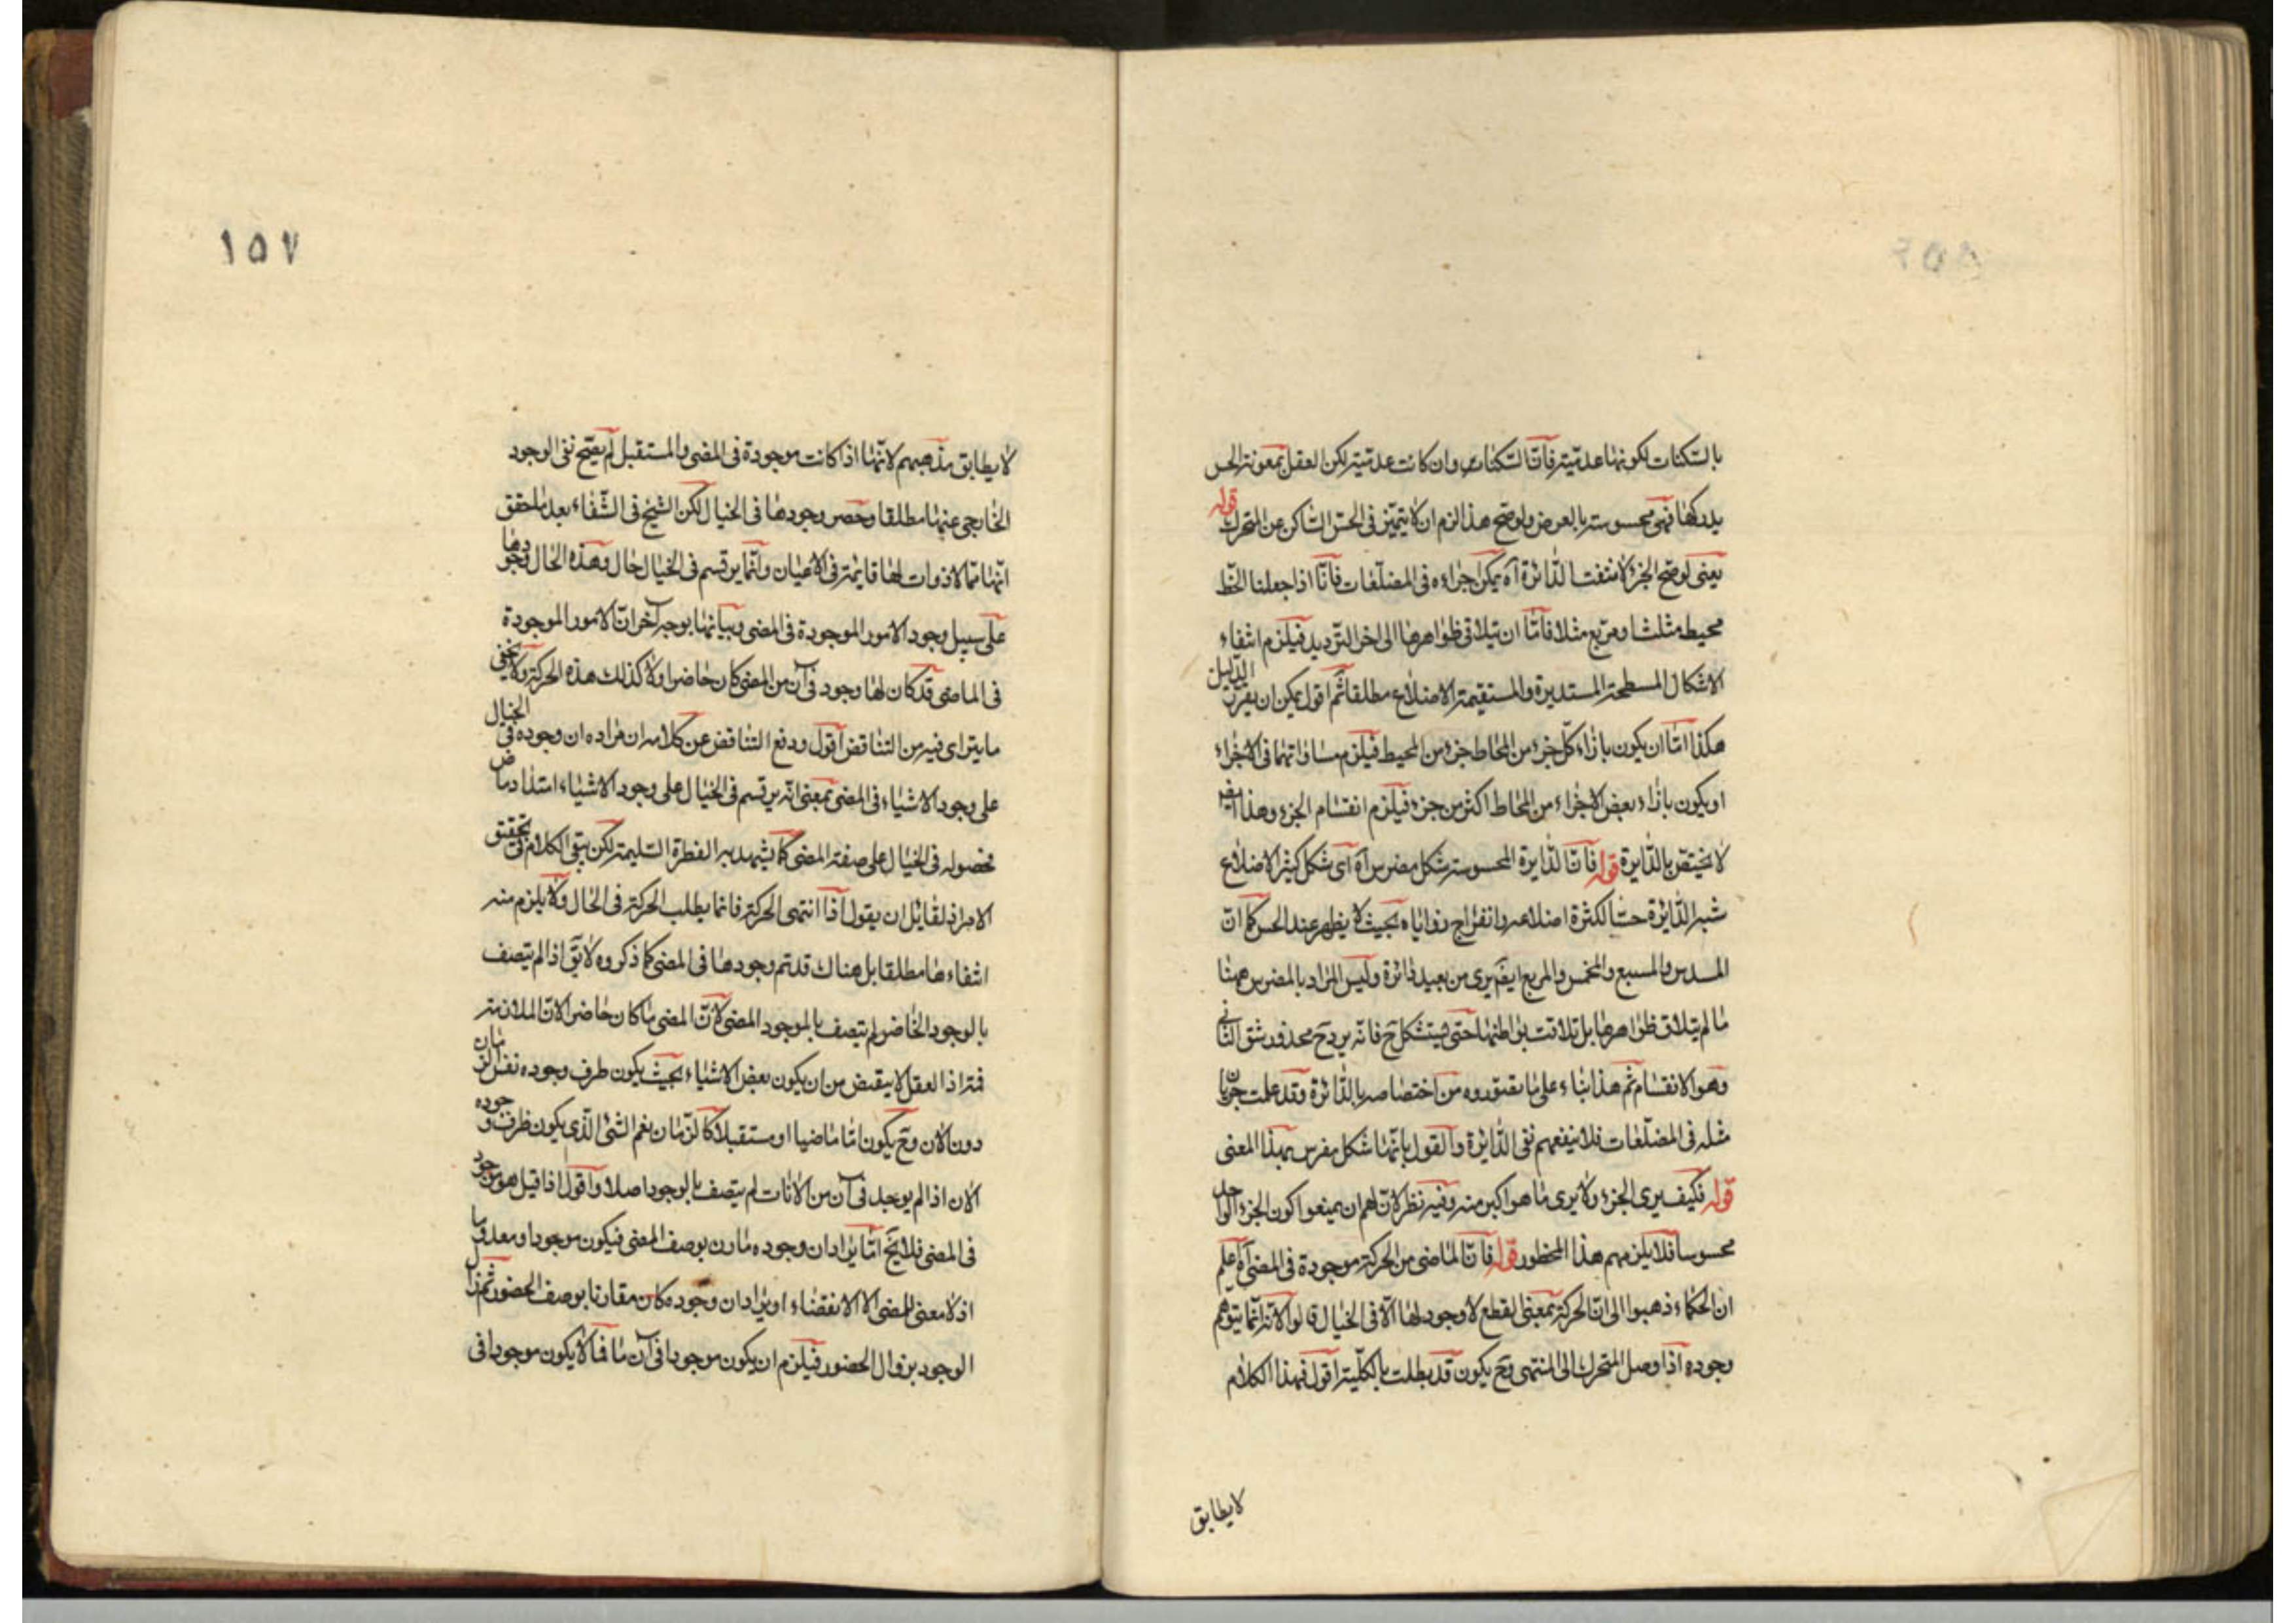 بالسكنات لكونها عدميّة فانّ السّكنات وان كانت عدميّة لكن العقل بمعونة الحس
يدركها فهي محسوسة بالعرض ولو صحّ هذا لزم ان لا يتميّز في الحسّ السّاكن عن المتحرك قوله
يعنى لو صحّ الجزء لانتفت الدّائرة آه يمكن اجراءه في المضلّعات فانّا اذا جعلنا الخّط
محيط مثلث او مربع مثلا فامّا ان يتلاقى ظواهرها الى اخر الترديد فيلزم انتفاء
الاشكال المسطحة المستديرة والمستقيمة الاضلاع مطلقا ثم اقول يمكن ان يقرّر الدليل
هكذا امّا ان يكون بازاء كلّ جزء من المحاط جزء من المحيط فيلزم مساواتهما في الاجزاء
او يكون بازاء بعض الاجزاء من المحاط اكثر من جزء فيلزم انقسام الجزء وهذا ايضا
لا يختصّ بالدّايرة قوله فانّ الدّايرة المحسوسة شكل مضرس آه اى شكل كثير الاضلاع
شبه الدّائرة حسّا لكثرة اضلاعه وانفراج زواياه بحيث لا يظهر عند الحس كما انّ
المسدس والمسبع والمخمس والمربع ايضا يرى من بعيد دائرة وليس المراد بالمضرس ههنا
ما لم يتلاق ظواهرها بل تلاقت بواطنها حتى يتشكل ح فانّه يرد ح محذور شق الثانى
وهو الانقسام ثم هذا بناء على ما تصوّروه من اختصاصه بالدّائرة وقد علمت جريان
مثله في المضلّعات فلا ينفعهم نفى الدّايرة والقول بانّها شكل مضرس بهذا المعنى
قوله فكيف يرى الجزء ولا يرى ما هو اكبر منه وفيه نظر لانّ لهم ان يمنعوا كون الجزء الواحد
محسوسا فلا يلزمهم هذا المحظور قوله فانّ الماضى من الحركة موجودة في المضى آه اعلم
ان الحكماء ذهبوا الى انّ الحركة بمعنى القطع لا وجود لها الّا في الخيال قالوا لانّه انّما يتوهّم
وجوده اذا وصل المتحرك الى المنتهى وح يكون قد بطلت بالكلّية اقول فهذا الكلام
لا يطابق
١٥٧
لا يطابق مذهبهم لانّها اذا كانت موجودة في المضى والمستقبل لم يصحّ نفى الوجود
الخارجى عنها مطلقا وحصر وجودها في الخيال لكن الشيخ في الشّفاء بعد ما حقق
انّها ممّا لا ذوات لها قايمة في الاعيان وانّما يرتسم في الخيال حال وهذه الحال وجودها
على سبيل وجود الامور الموجودة في المضى وبيانها بوجه آخر انّ الامور الموجودة
في الماضى قد كان لها وجود في آن من المضى كان حاضرا ولا كذلك هذه الحركة ولا يخفى
ما يترائ فيه من التناقض اقول ودفع التناقض عن كلامه ان مراده ان وجوده في الخيال
على وجود الاشياء في المضى بمعنى انّه يرتسم في الخيال على وجود الاشياء
فحصوله في الخيال على صفة المضى كما يشهد به الفطرة السّليمة لكن بقى الكلام في تحقيق
الامر اذ لقائل ان يقول اذا انتهى الحركة فانما يطلب الحركة في الحال ولا يلزم منه
انتفاءها مطلقا بل هناك قد تم وجودها في المضى كما ذكروه لا يق اذا لم يتصف
بالوجود الحاضر لم يتصف بالموجود المضى لانّ المضى ما كان حاضرا لانّ الملازمة
اذ العقل لا ينقبض من ان يكون بعض الاشياء بحيث يكون ظرف وجوده نفس الزمان
دون الآن وح يكون امّا ماضيا او مستقبلا كالزمان نعم الشئ الّذى يكون ظرف وجوده
الآن اذا لم يوجد في آن من الآنات لم يتصف بالوجود اصلا واقول اذا قيل هو موجود
في المضى فلا يخ امّا يراد ان وجوده مقارن بوصف المضى فيكون موجودا ومعدوما
اذ لا معنى للمضى الا الانقضاء او يراد ان وجوده كان مقارنا بوصف الحضور ثم زال
الوجود بزوال الحضور فيلزم ان يكون موجودا في آن ما فما لا يكون موجودا في